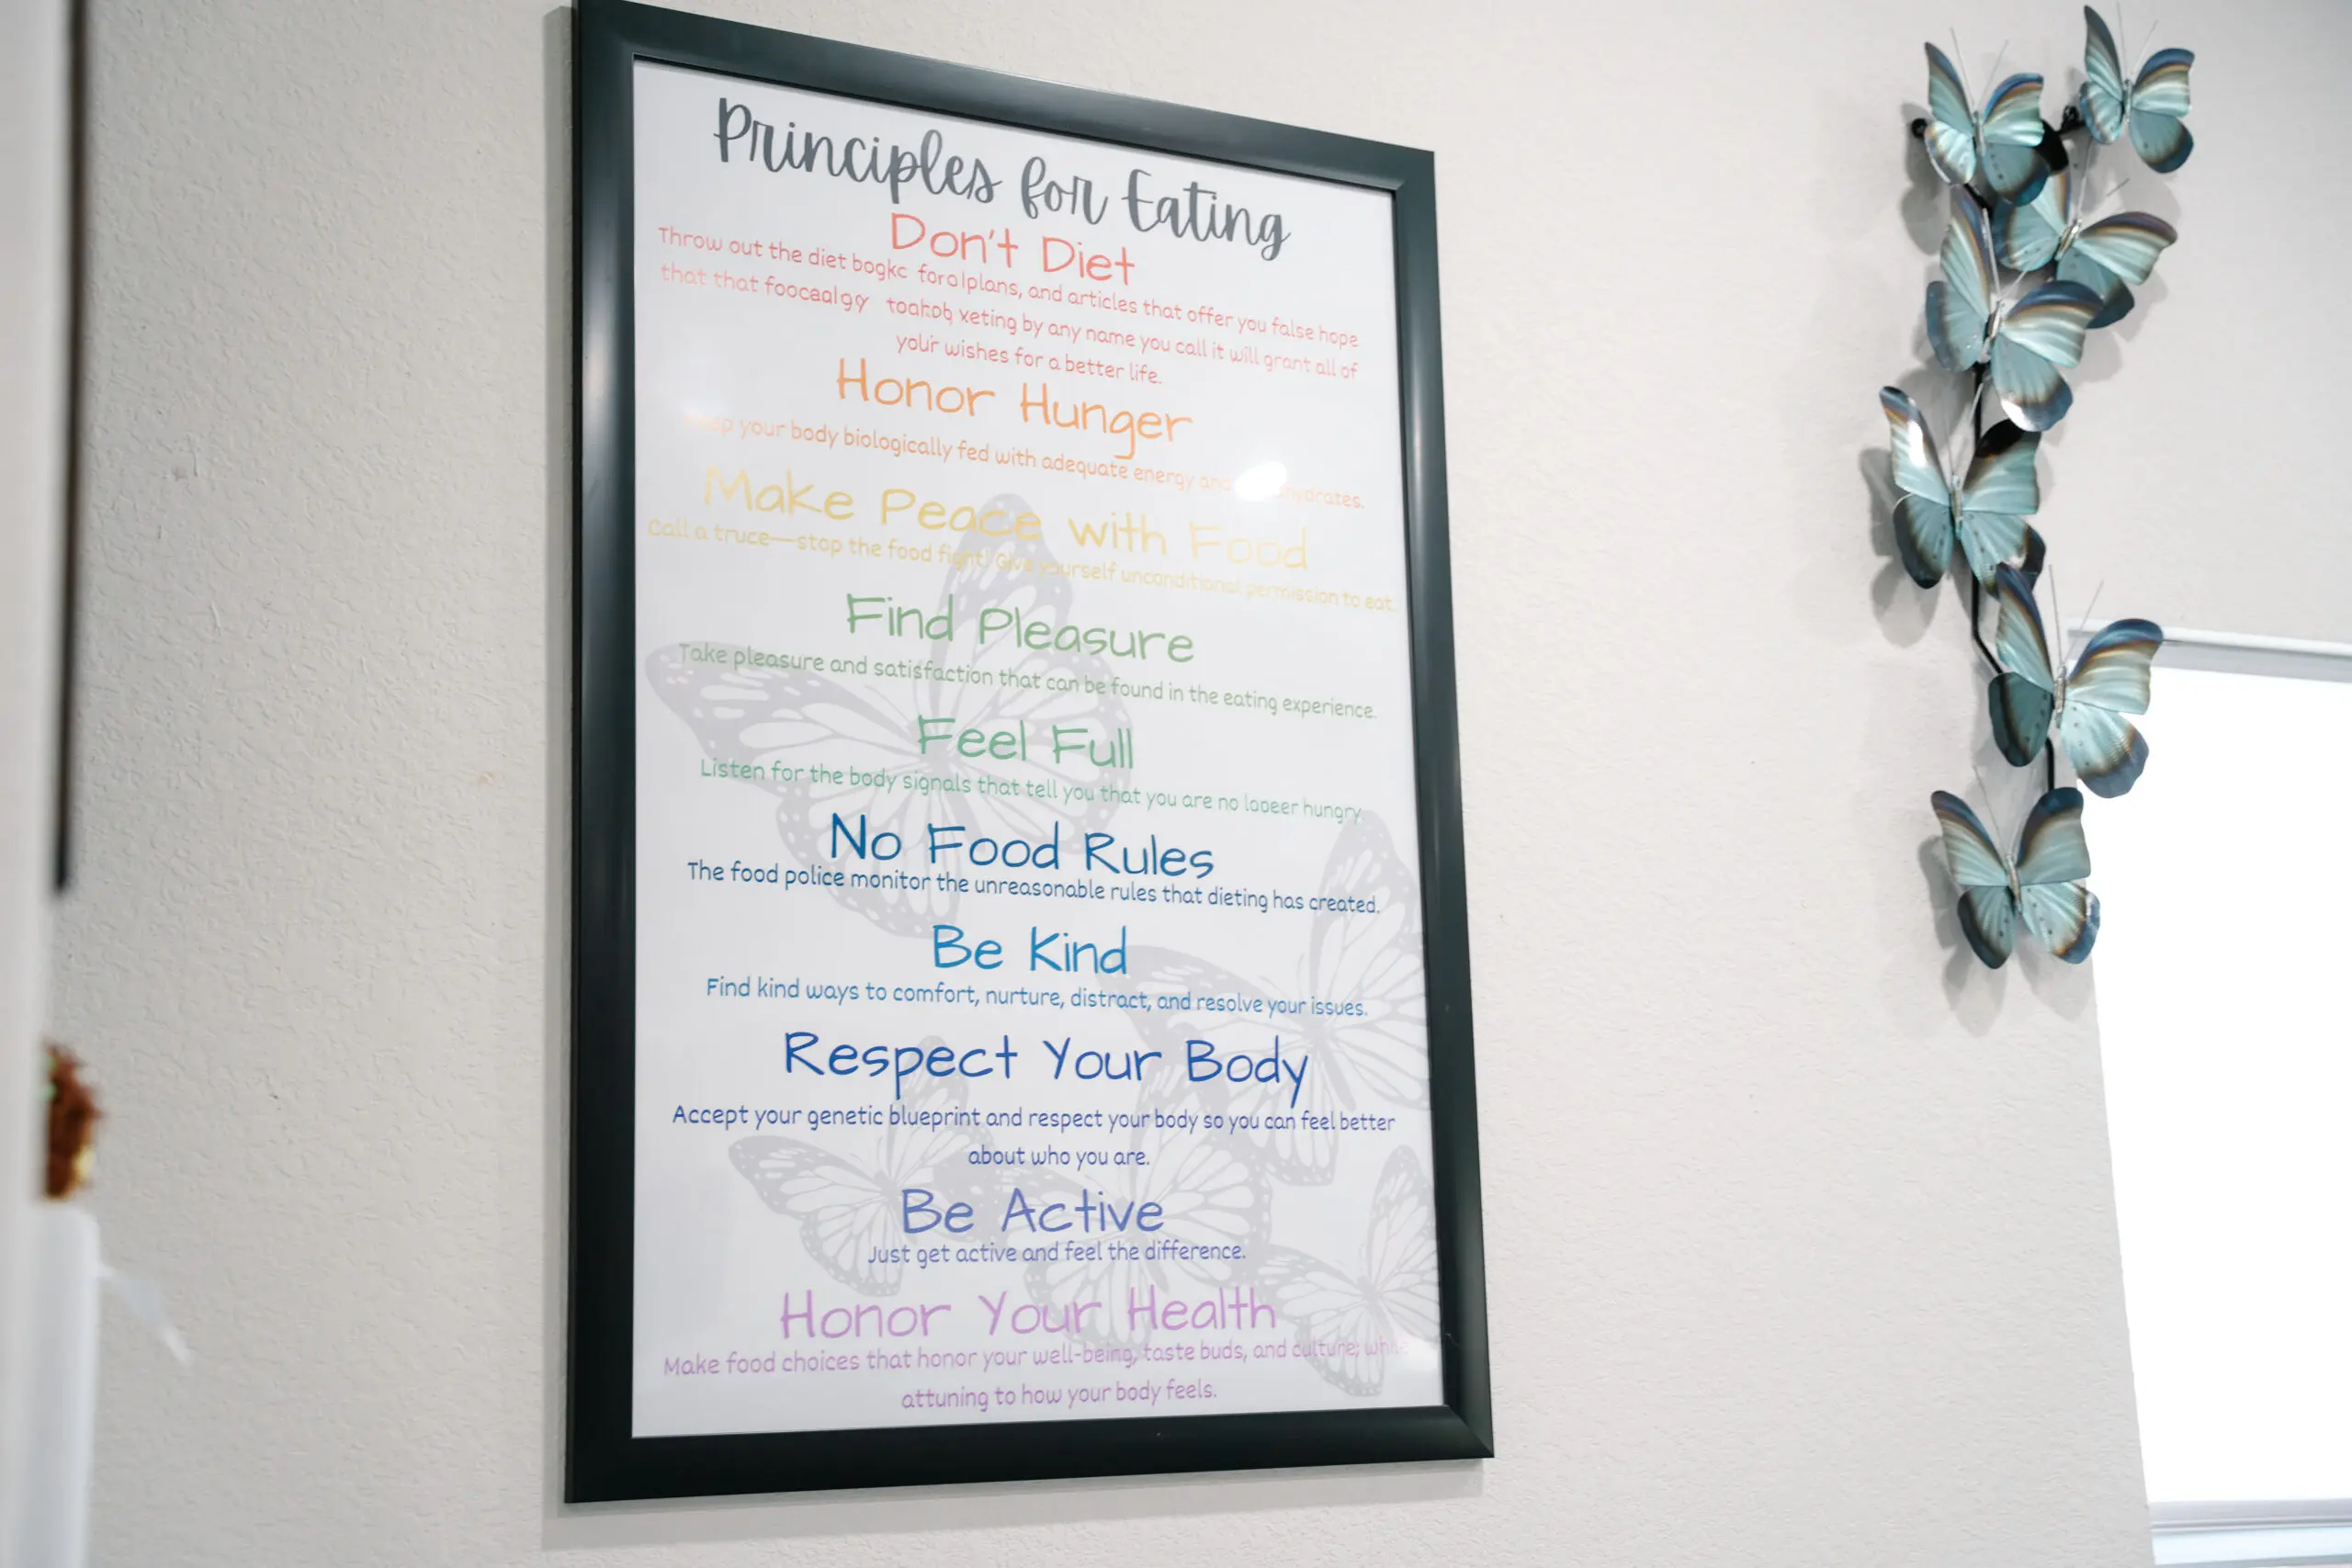 Principles for Eating
Don't Diet
Throw out the diet plans, and articles that offer you false hope
that that by any name you call it will grant all of
your wishes for a better life.
Honor Hunger
your body biologically fed with adequate energy and
Make Peace with Food
Call a truce—stop the food fight! Give yourself unconditional permission to eat.
Find Pleasure
Take pleasure and satisfaction that can be found in the eating experience.
Feel Full
Listen for the body signals that tell you that you are no hungry
No Food Rules
The food police monitor the unreasonable rules that dieting has created.
Be Kind
Find kind ways to comfort, nurture, distract, and resolve your issues.
Respect Your Body
Accept your genetic blueprint and respect your body so you can feel better
about who you are.
Be Active
Just get active and feel the difference.
Honor Your Health
Make food choices that honor your well-being, taste buds, and culture;
attuning to how your body feels.